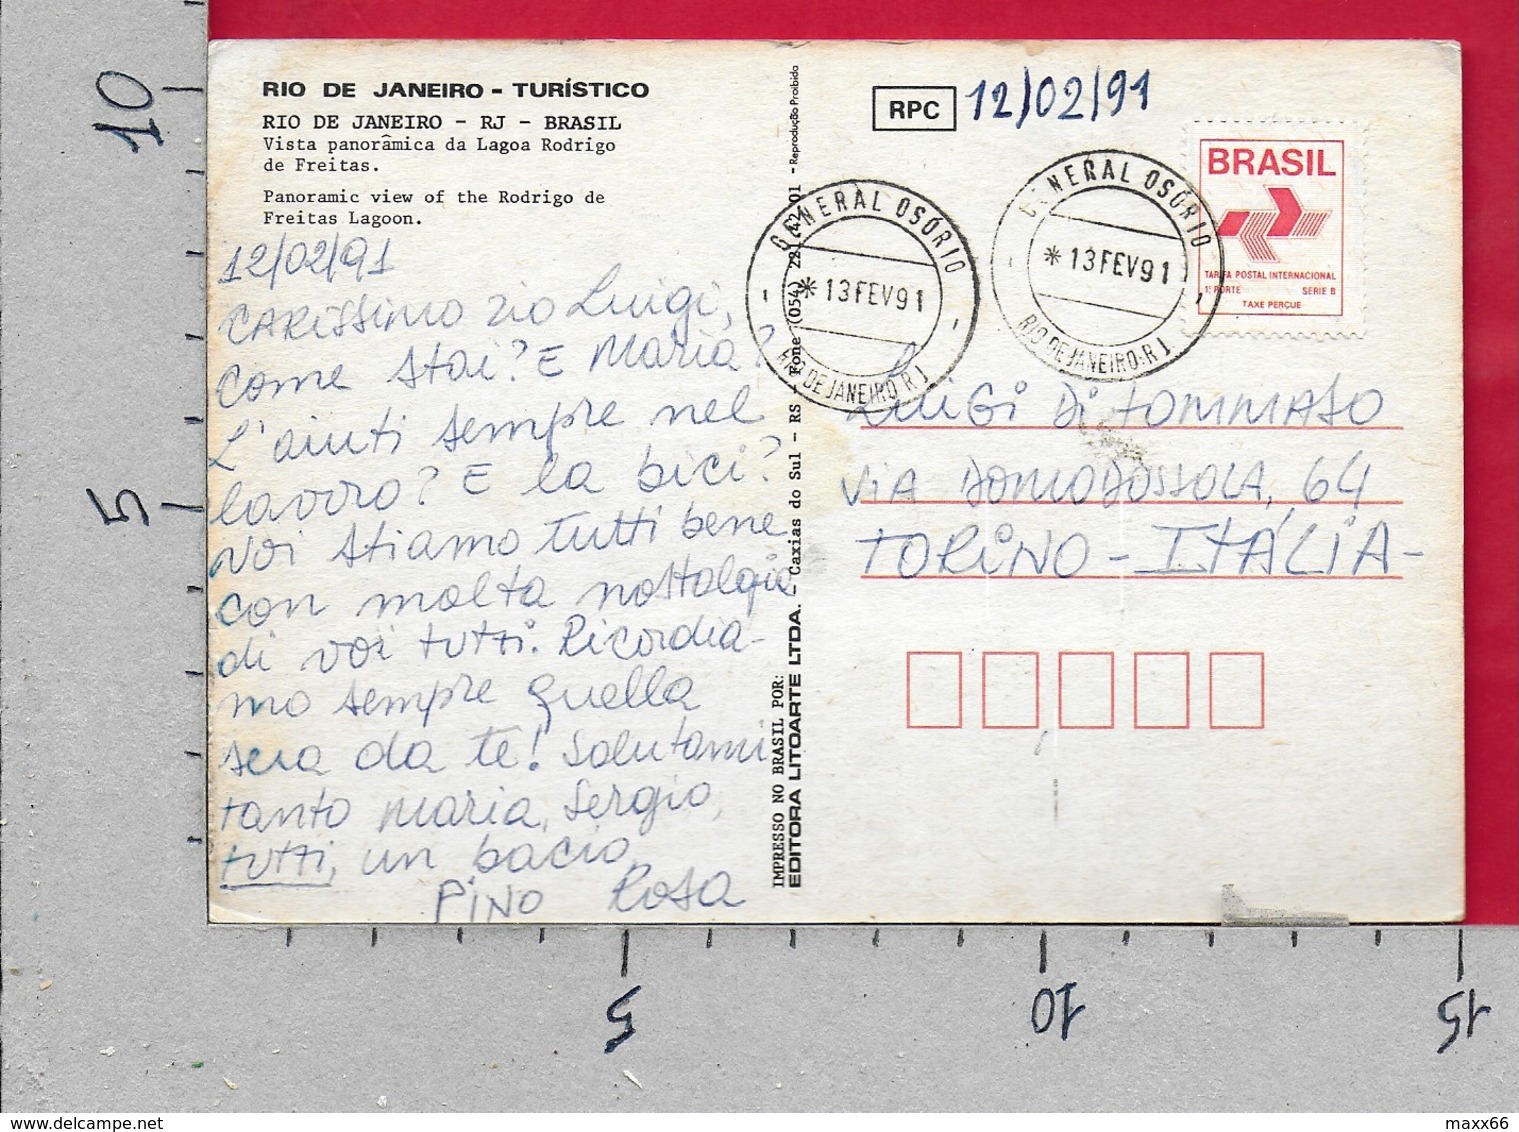 RIO DE JANEIRO - TURÍSTICO
RIO DE JANEIRO - RJ - BRASIL
Vista panorâmica da Lagoa Rodrigo
de Freitas.
Panoramic view of the Rodrigo de
Freitas Lagoon.
12/02/91
CARISSIMO ZIO Luigi,
come stai? E Maria?
L'aiuti sempre nel
lavoro? E la bici?
Noi stiamo tutti bene
con molta nostalgia
di voi tutti. Ricordia-
mo sempre quella
sera da te! Salutami
tanto Maria, Sergio,
tutti, un bacio,
PINO Rosa
IMPRESSO NO BRASIL POR:
EDITORA LITOARTE LTDA. - Caxias do Sul - RS - Fone (054) 221.42.01 - Reprodução Proibida
RPC
12/02/91
GENERAL OSÓRIO
*13FEV91
RIO DE JANEIRO.RJ
GENERAL OSÓRIO
*13FEV91
RIO DE JANEIRO.RJ
BRASIL
TARIFA POSTAL INTERNACIONAL
1º PORTE SERIE B
TAXE PERÇUE
LUIGI DI TOMMASO
VIA DOMODOSSOLA, 64
TORINO - ITÁLIA -
10
5
5
10
15
maxx66